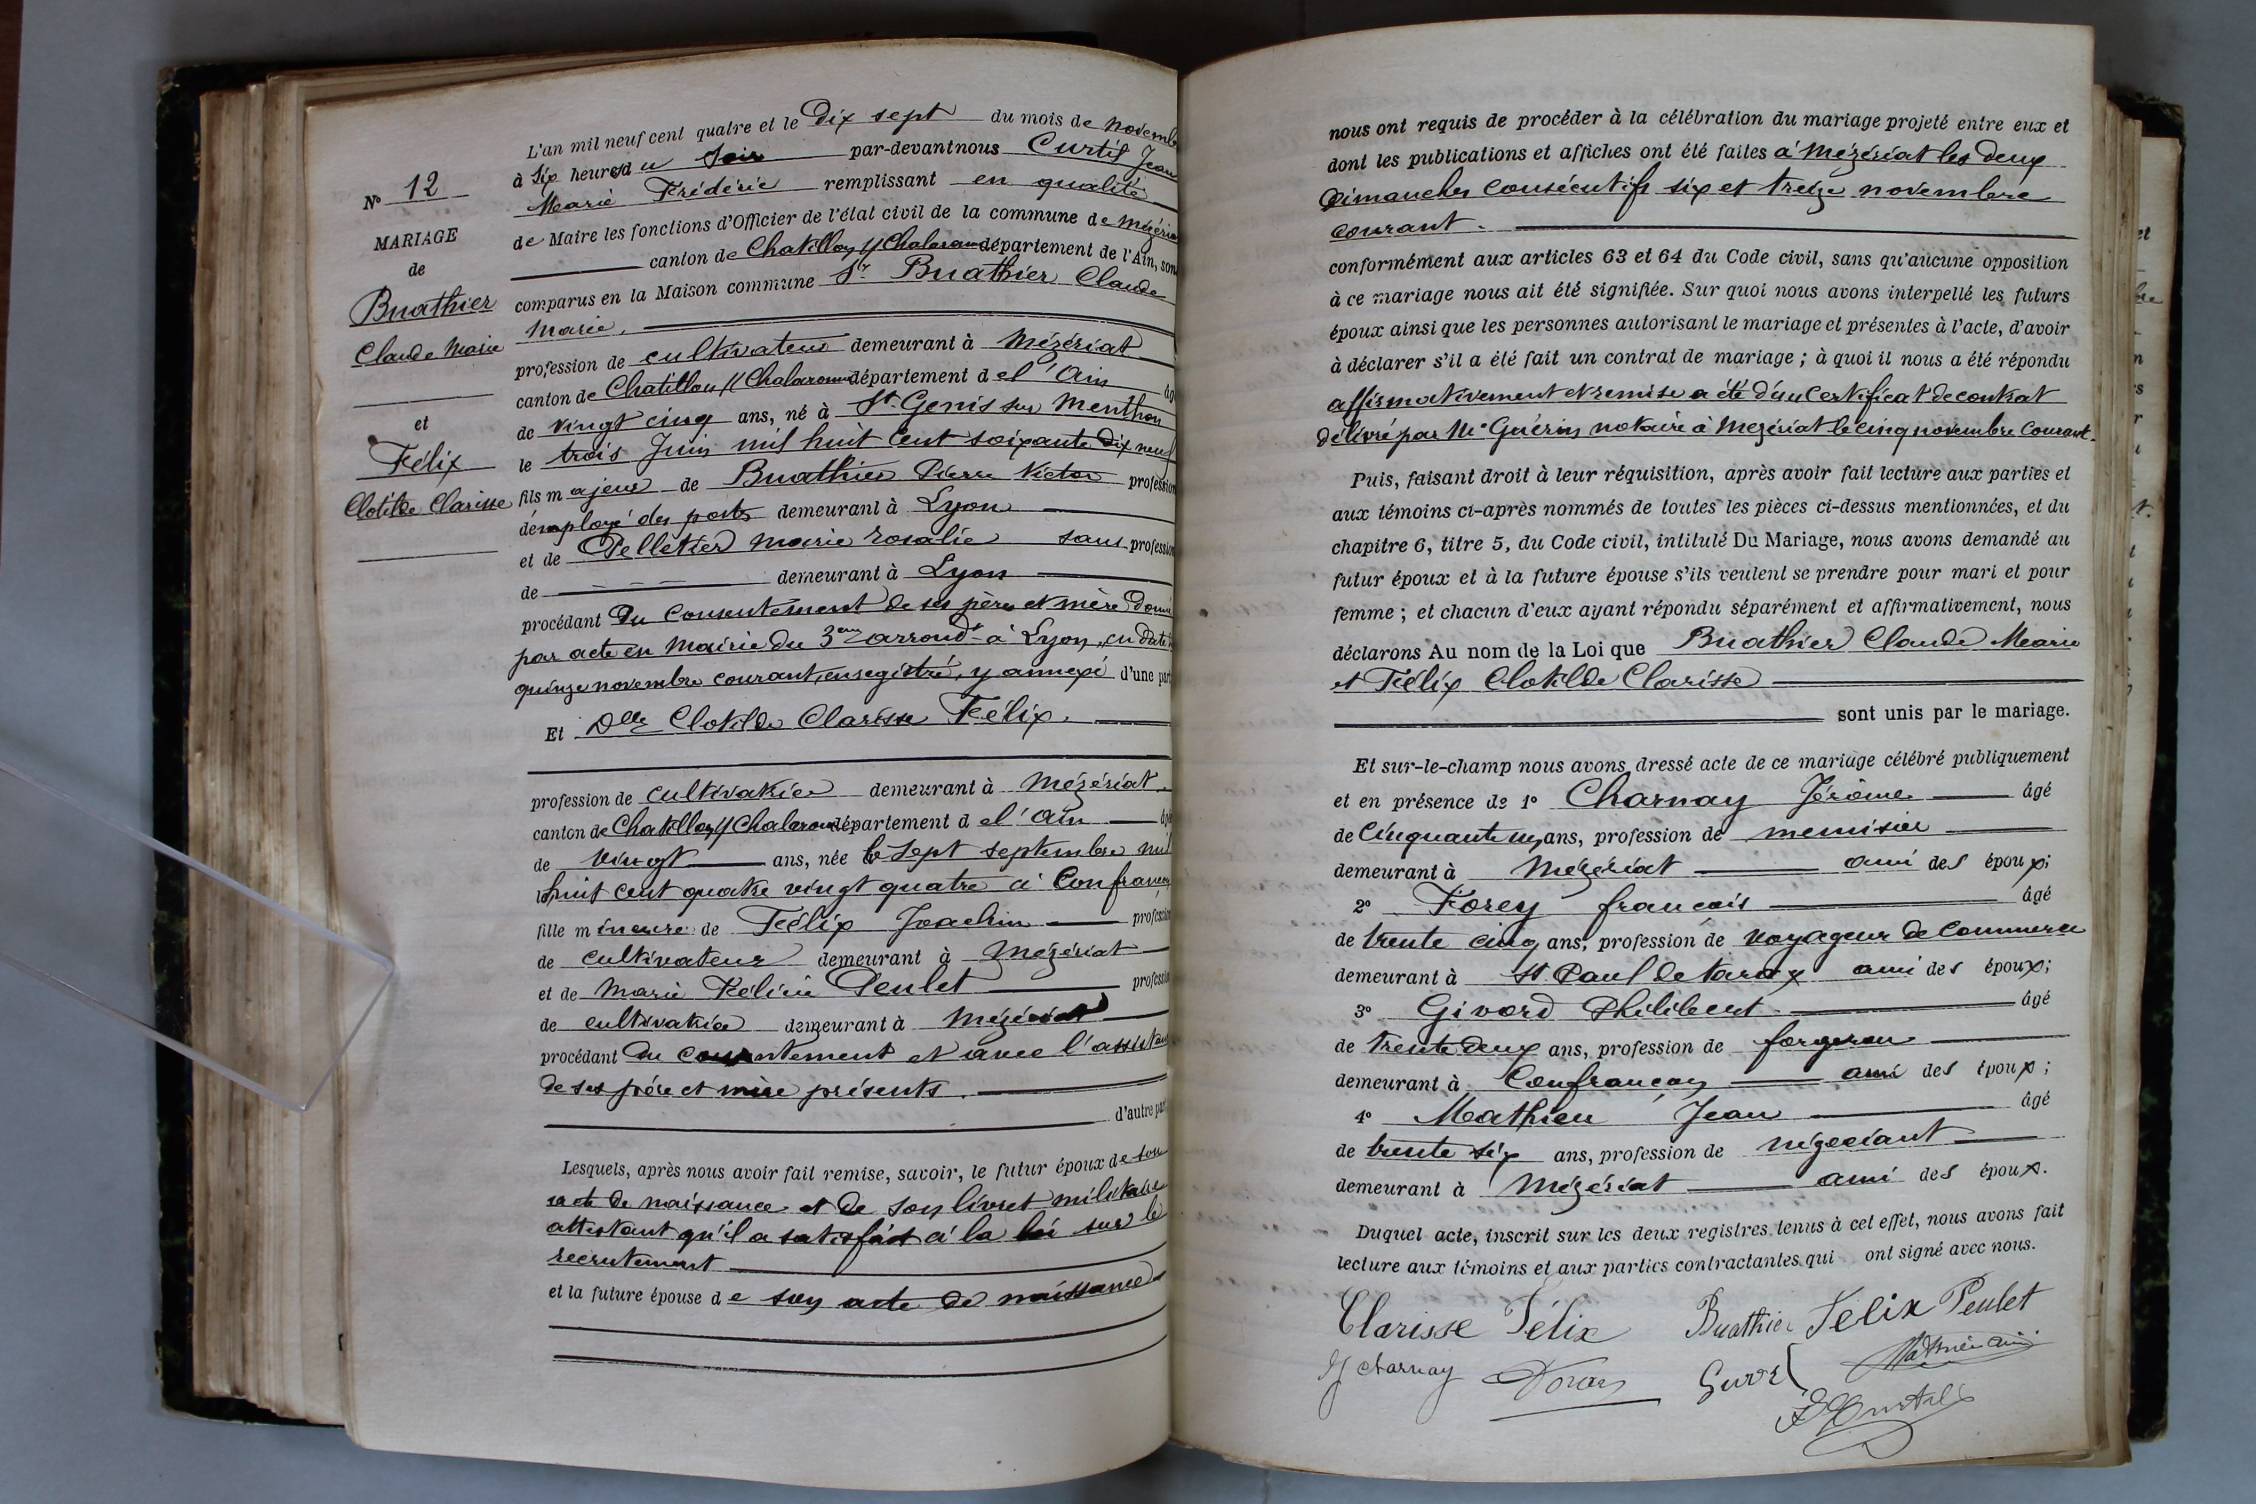 N° 12
MARIAGE
de
Buathier
Claude Marie
et
Félix
Clotilde Clarisse
L'an mil neuf cent quatre et le Dix sept du mois de novemb
à six heures du Soir par-devant nous Curtil Jean
Marie Frédéric remplissant en qualité
de Maire les fonctions d'Officier de l'état civil de la commune de Mézéria
canton de Chatillon s/ Chalaronne département de l'Ain, son
comparus en la Maison commune Sr Buathier Claude
Marie.
profession de cultivateur demeurant à Mézériat
canton de Chatillon s/ Chalaronne département de l'Ain âg
de vingt cinq ans, né à St Genis sur Menthon
le trois Juin mil huit cent soixante dix neuf
fils majeur de Buathier Pierre Victor profession
d'employé des postes demeurant à Lyon
et de Pelletier Marie Rosalie sans profession
de demeurant à Lyon
procédant du consentement de ses père et mère donné
par acte en Mairie du 3eme arrondt à Lyon, en date
quinze novembre courant, enregistré, y annexé d'une part
Et Dlle Clotilde Clarisse Félix.
profession de cultivatrice demeurant à Mézériat
canton de Chatillon s/ Chalaronne département de l'Ain âgé
de vingt ans, née le sept septembre mil
huit cent quatre vingt quatre à Confrançon
fille mineure de Félix Joachim profession
de cultivateur demeurant à Mézériat
et de Marie Félicie Peulet profession
de cultivatrice demeurant à Mézériat
procédant du consentement et avec l'assistan
de ses père et mère présents.
d'autre part
Lesquels, après nous avoir fait remise, savoir, le futur époux de son
acte de naissance et de son livret militaire
attestant qu'il a satisfait à la loi sur le
recrutement
et la future épouse de son acte de naissance
nous ont requis de procéder à la célébration du mariage projeté entre eux et
dont les publications et affiches ont été faites à Mézériat les deux
Dimanches consécutifs six et treize novembre
courant.
conformément aux articles 63 et 64 du Code civil, sans qu'aucune opposition
à ce mariage nous ait été signifiée. Sur quoi nous avons interpellé les futurs
époux ainsi que les personnes autorisant le mariage et présentes à l'acte, d'avoir
à déclarer s'il a été fait un contrat de mariage ; à quoi il nous a été répondu
affirmativement et remise a été d'un certificat de contrat
délivré par Me Guérin notaire à Mézériat le cinq novembre courant.
Puis, faisant droit à leur réquisition, après avoir fait lecture aux parties et
aux témoins ci-après nommés de toutes les pièces ci-dessus mentionnées, et du
chapitre 6, titre 5, du Code civil, intitulé Du Mariage, nous avons demandé au
futur époux et à la future épouse s'ils veulent se prendre pour mari et pour
femme ; et chacun d'eux ayant répondu séparément et affirmativement, nous
déclarons Au nom de la Loi que Buathier Claude Marie
et Félix Clotilde Clarisse
sont unis par le mariage.
Et sur-le-champ nous avons dressé acte de ce mariage célébré publiquement
et en présence de 1° Charnay Jérôme âgé
de cinquante un ans, profession de menuisier
demeurant à Mézériat ami des époux;
2° Forey françois âgé
de trente cinq ans, profession de voyageur de commerce
demeurant à St Paul de Varax ami des époux;
3° Givord Philibert âgé
de trente deux ans, profession de forgeron
demeurant à Confrançon ami des époux;
4° Mathieu Jean âgé
de trente six ans, profession de négociant
demeurant à Mézériat ami des époux.
Duquel acte, inscrit sur les deux registres tenus à cet effet, nous avons fait
lecture aux témoins et aux parties contractantes qui ont signé avec nous.
Clarisse Félix Buathier Felix Peulet
J Charnay